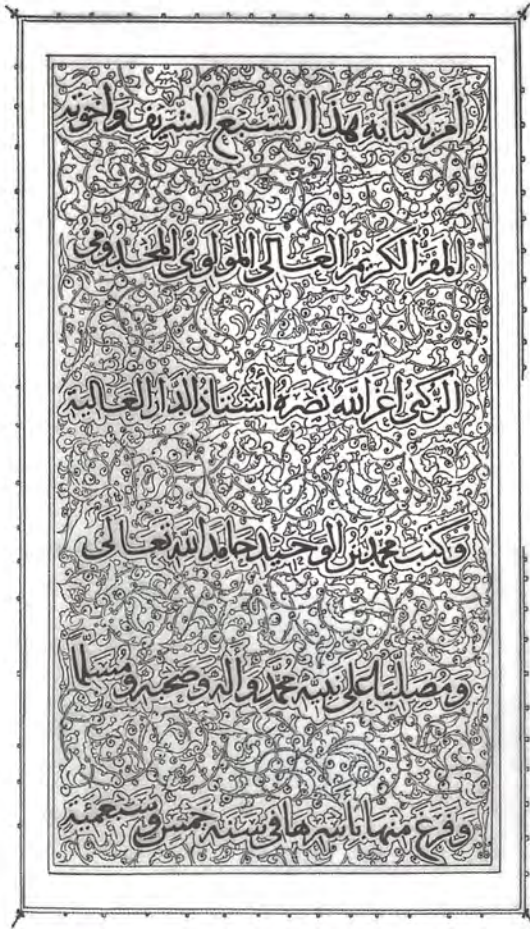 أمر بكتابة هذا السبع الشريف وأخوته
المقر الكريم العالي المولوي المخدومي
الركني أعز الله نصره أستاذ الدار العالية
وكتب محمد بن الوحيد حامدا لله تعالى
ومصليا على نبيه محمد وآله وصحبه ومسلما
وفرغ منها بأسرها في سنة خمس وسبعمئة